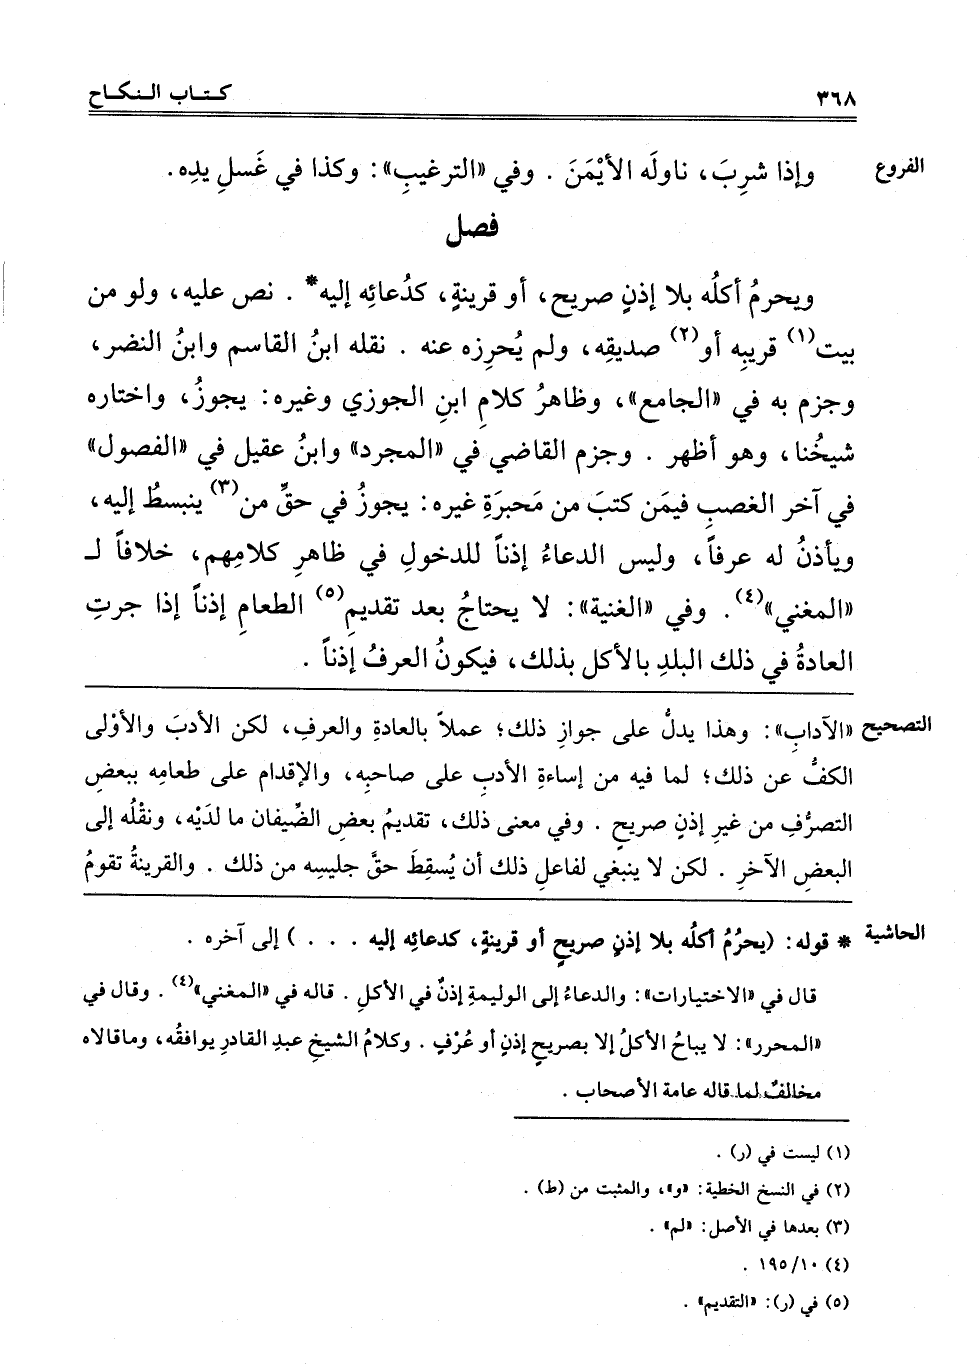 ٣٦٨ كتاب النكاح
الفروع وإذا شرِبَ، ناولَه الأيْمَنَ . وفي «الترغيبِ»: وكذا في غَسلِ يدِه.
فصل
ويحرمُ أكلُه بلا إذنٍ صريحٍ، أو قرينةٍ، كدُعائِه إليه* . نص عليه، ولو من
بيت(١) قريبِه أو(٢) صديقِه، ولم يُحرِزه عنه . نقله ابنُ القاسم وابنُ النضر،
وجزم به في «الجامع»، وظاهرُ كلامِ ابنِ الجوزي وغيره: يجوزُ، واختاره
شيخُنا، وهو أظهر . وجزم القاضي في «المجرد» وابنُ عقيل في «الفصول»
في آخر الغصبِ فيمَن كتبَ من مَحبَرَةِ غيره: يجوزُ في حقِّ من(٣) ينبسطُ إليه،
ويأذنُ له عرفاً، وليس الدعاءُ إذناً للدخولِ في ظاهرِ كلامِهم، خلافاً لـ
«المغني»(٤). وفي «الغنية»: لا يحتاجُ بعد تقديمِ(٥) الطعامِ إذناً إذا جرتِ
العادةُ في ذلك البلدِ بالأكل بذلك، فيكونُ العرفُ إذناً .
التصحيح «الآدابِ»: وهذا يدلُّ على جوازِ ذلك؛ عملاً بالعادةِ والعرفِ، لكن الأدبَ والأوْلى
الكفُّ عن ذلك؛ لما فيه من إساءةِ الأدبِ على صاحبِه، والإقدام على طعامِه ببعضِ
التصرُّفِ من غيرِ إذنٍ صريحٍ . وفي معنى ذلك، تقديمُ بعضِ الضِّيفان ما لدَيْه، ونقْلُه إلى
البعضِ الآخرِ . لكن لا ينبغي لفاعلِ ذلك أن يُسقِطَ حقَّ جليسِه من ذلك . والقرينةُ تقومُ
الحاشية * قوله: (يحرُمُ أكلُه بلا إذنٍ صريحٍ أو قرينةٍ، كدعائِه إليه . . . ) إلى آخره .
قال في «الاختيارات»: والدعاءُ إلى الوليمةِ إذنٌ في الأكلِ . قاله في «المغني»(٤) . وقال في
«المحرر»: لا يباحُ الأكلُ إلا بصريحِ إذنٍ أو عُرْفٍ . وكلامُ الشيخِ عبدِ القادرِ يوافقُه، وماقالاه
مخالفٌ لما قاله عامة الأصحاب .
(١) ليست في (ر) .
(٢) في النسخ الخطية: «و»، والمثبت من (ط) .
(٣) بعدها في الأصل: «لم» .
(٤) ١٩٥/١٠ .
(٥) في (ر): «التقديم» .